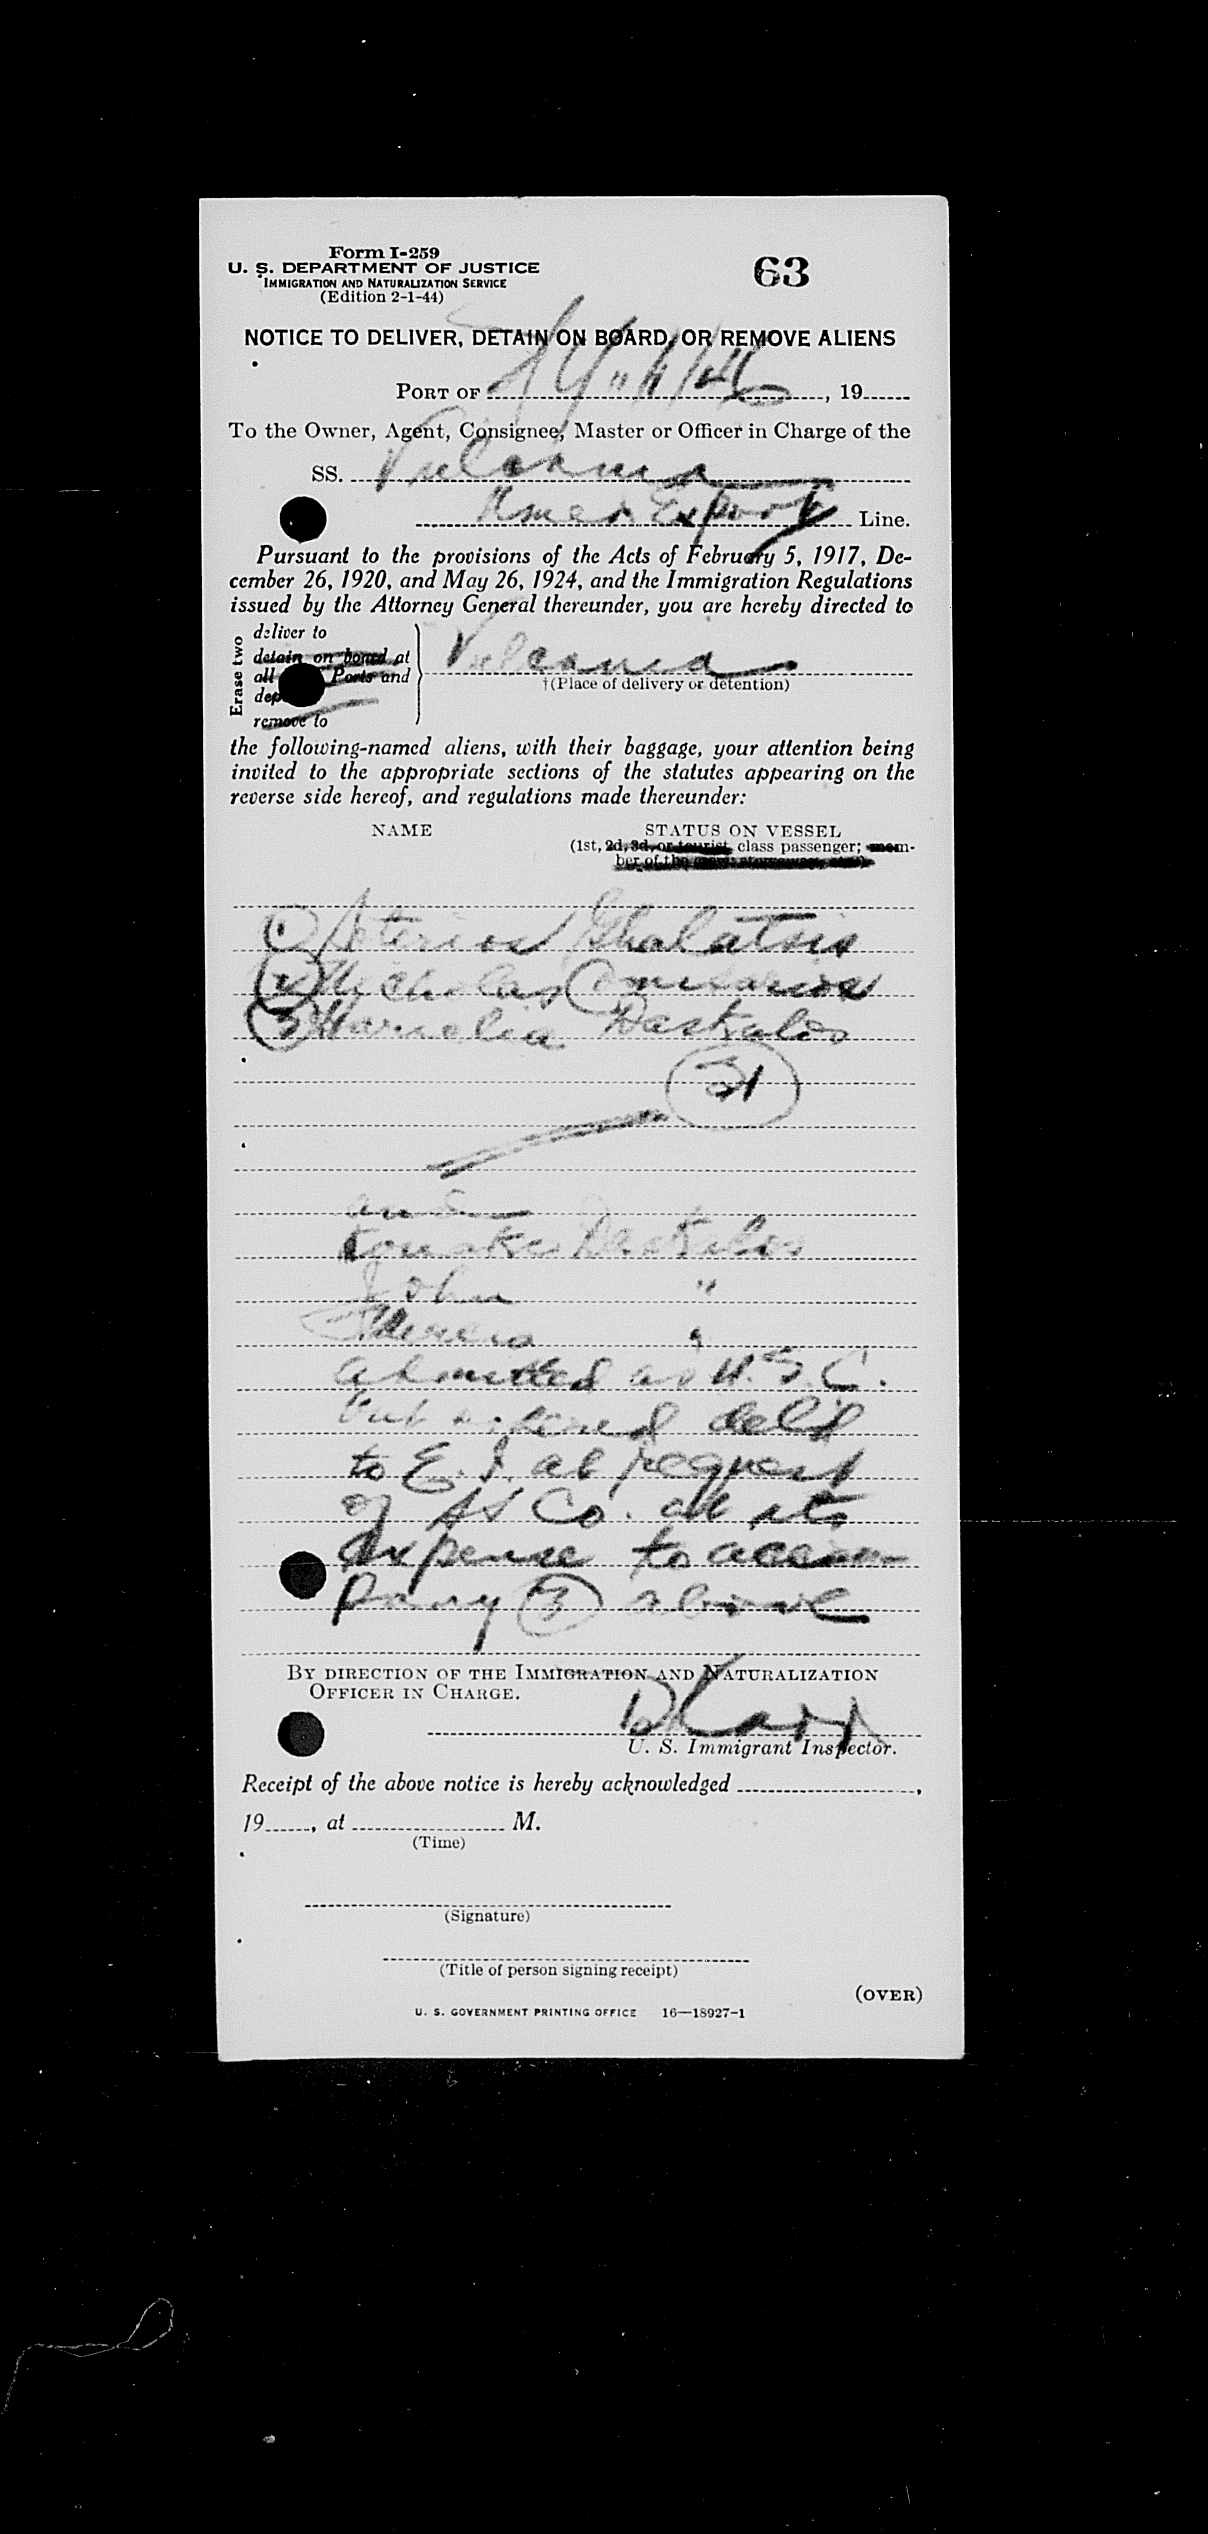 Form I-259
U. S. DEPARTMENT OF JUSTICE
IMMIGRATION AND NATURALIZATION SERVICE
(Edition 2-1-44)
63
NOTICE TO DELIVER, DETAIN ON BOARD, OR REMOVE ALIENS
PORT OF NY, 19
To the Owner, Agent, Consignee, Master or Officer in Charge of the
SS. Vulcania
Amer Export Line.
Pursuant to the provisions of the Acts of February 5, 1917, De-
cember 26, 1920, and May 26, 1924, and the Immigration Regulations
issued by the Attorney General thereunder, you are hereby directed to
Erase two
deliver to
detain on board at
all Ports and
remove to
Vulcania
†(Place of delivery or detention)
the following-named aliens, with their baggage, your attention being
invited to the appropriate sections of the statutes appearing on the
reverse side hereof, and regulations made thereunder:
NAME
STATUS ON VESSEL
(1st, 2d, 3d, or tourist class passenger; mem-
ber of the
1 Sterios Ghalatsis
2 Nicholas
3 Daskalos
and
Daskalos
John "
"
admitted as U.S.C.
but deld
to E. I. at request
of SS Co. at its
expense to accom
pany 3 above
BY DIRECTION OF THE IMMIGRATION AND NATURALIZATION
OFFICER IN CHARGE.
U. S. Immigrant Inspector.
Receipt of the above notice is hereby acknowledged ,
19 , at M.
(Time)
(Signature)
(Title of person signing receipt)
(OVER)
U. S. GOVERNMENT PRINTING OFFICE 16—18927-1